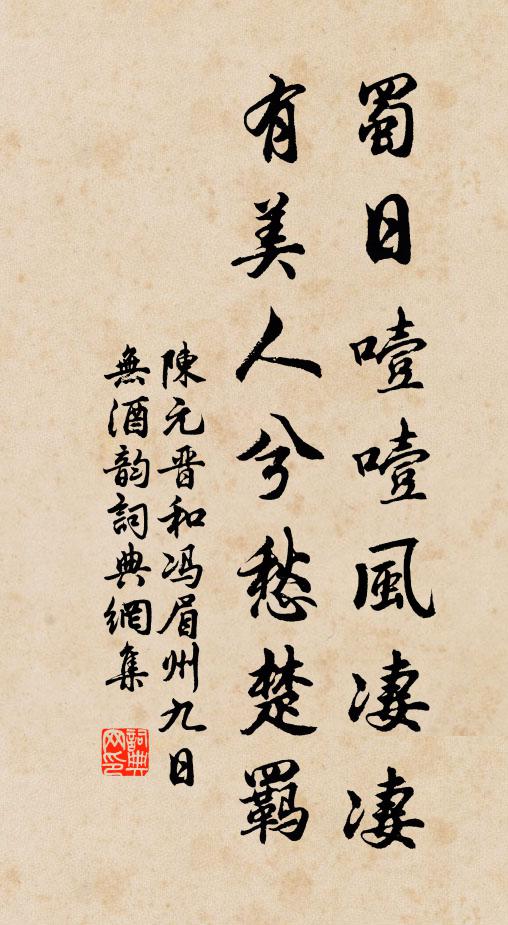 蜀日噎噎風凄凄
有美人兮愁楚羈
陳元晋和冯眉州九日
無酒韵詞典網集
詞典
网印